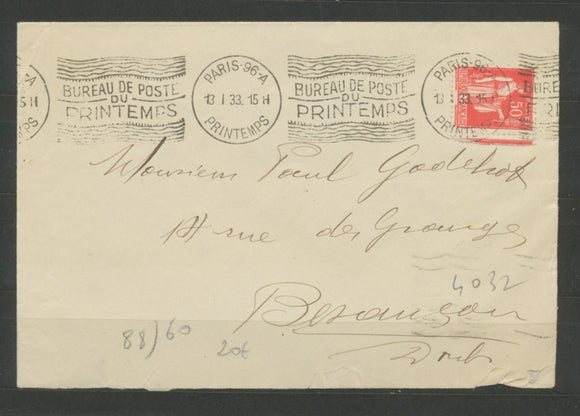 BUREAU DE POSTE
DU
PRINTEMPS
PARIS-96-A
13 I 33. 15 H
PRINTEMPS
BUREAU DE POSTE
DU
PRINTEMPS
PARIS-96-A
13 I 33.
PRINTEMPS
BUR
RI
50
5 H
MPS
Monsieur Paul Godehot
14 rue des Granges
Besançon
Doubs
4032
88/60
20€